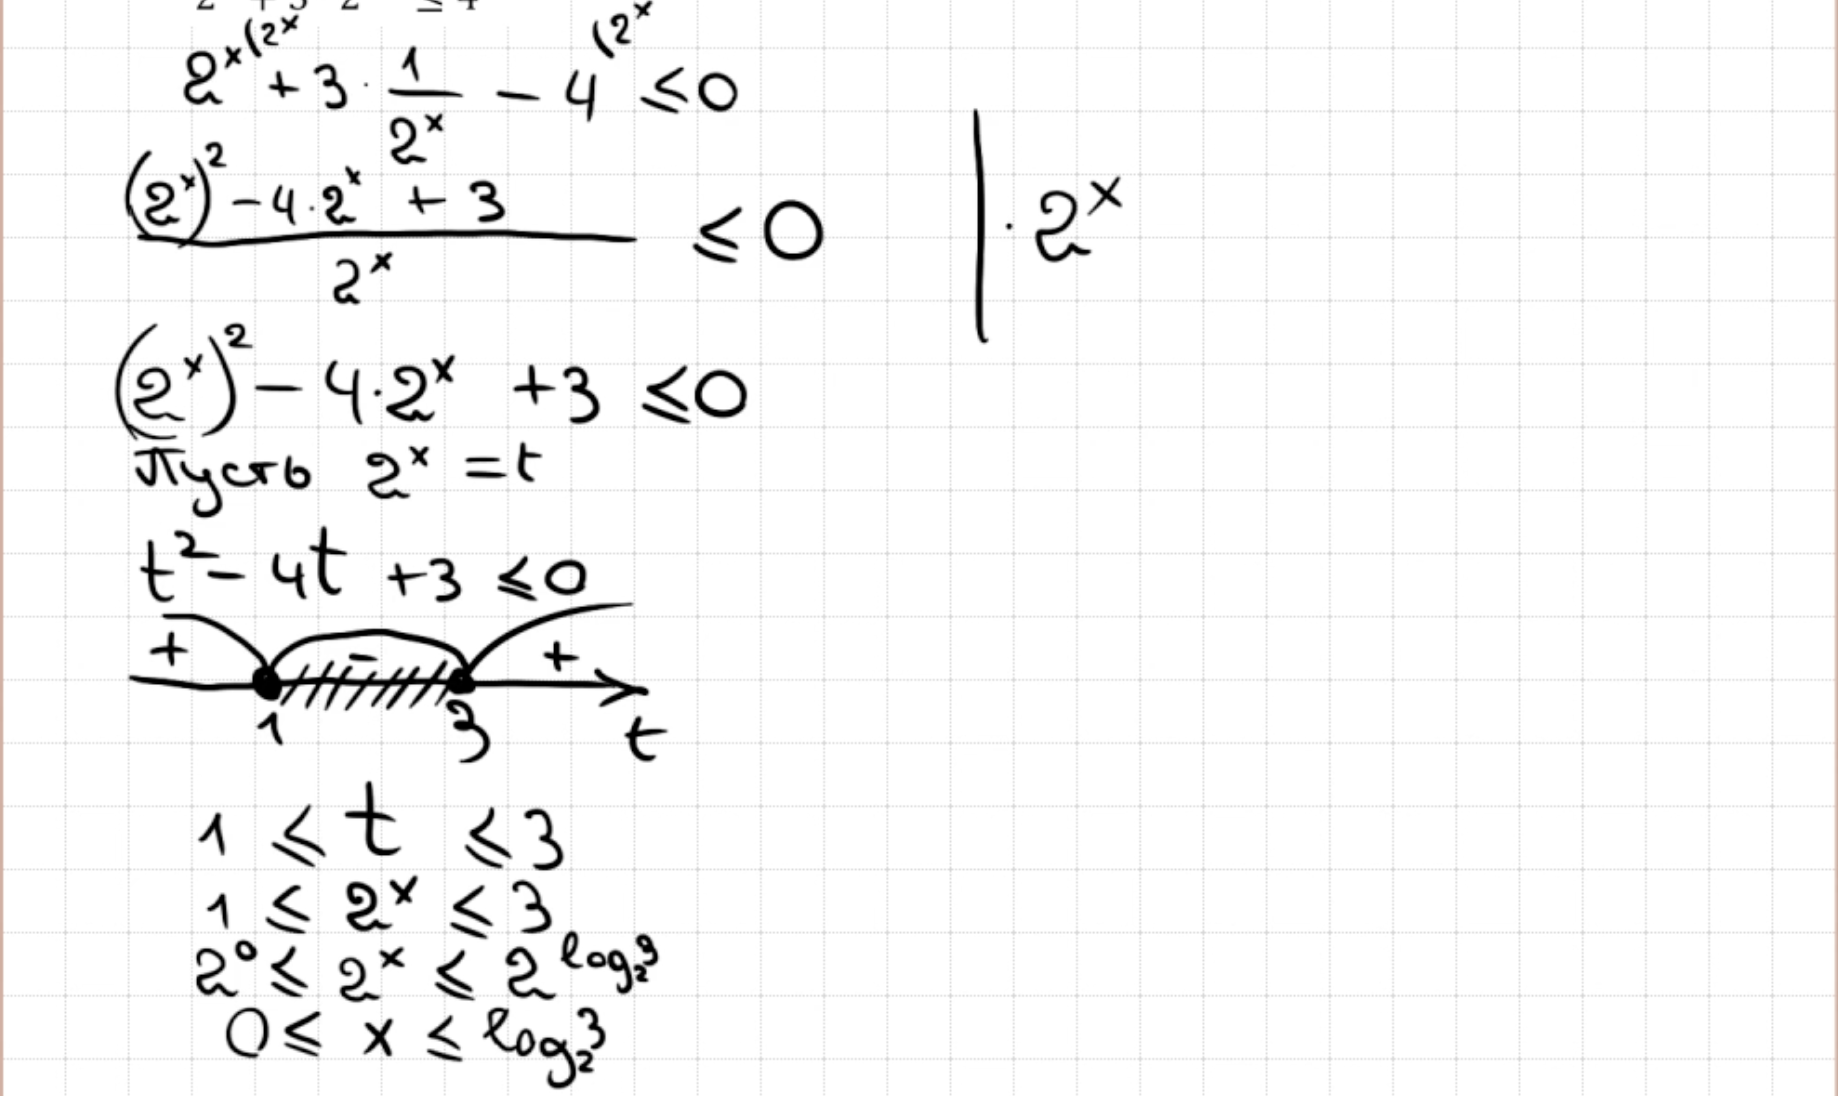 2^x (2^x + 3 · 1/2^x − 4 (2^x ≤ 0
((2^x)^2 − 4·2^x + 3)/2^x ≤ 0 | · 2^x
(2^x)^2 − 4·2^x + 3 ≤ 0
Пусть 2^x = t
t^2 − 4t + 3 ≤ 0
+ − +
1 3 t
1 ≤ t ≤ 3
1 ≤ 2^x ≤ 3
2^0 ≤ 2^x ≤ 2^(log_2 3)
0 ≤ x ≤ log_2 3